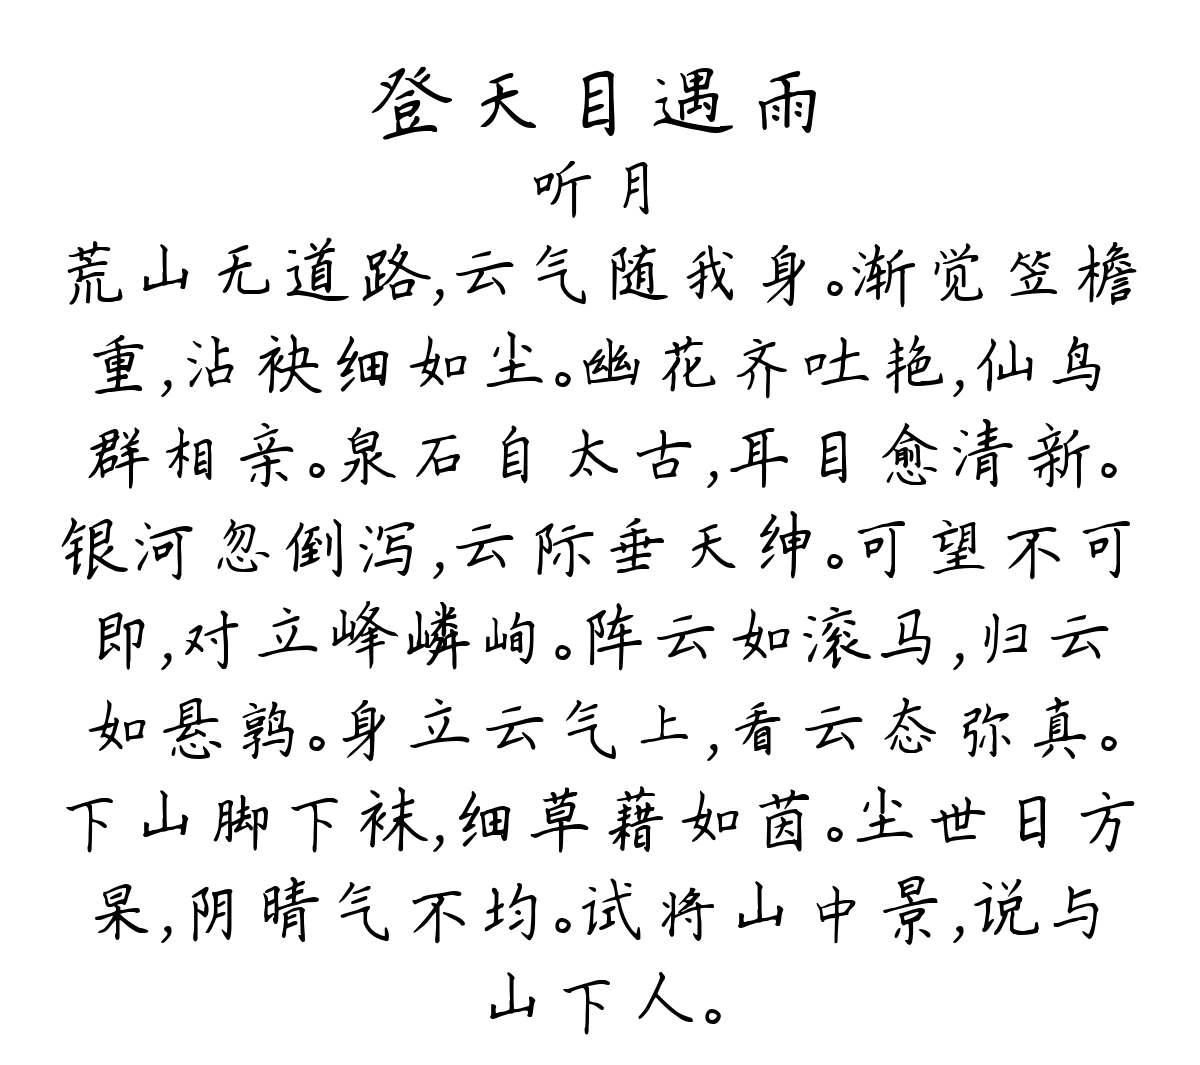 登天目遇雨
听月
荒山无道路,云气随我身。渐觉笠檐
重,沾袂细如尘。幽花齐吐艳,仙鸟
群相亲。泉石自太古,耳目愈清新。
银河忽倒泻,云际垂天绅。可望不可
即,对立峰嶙峋。阵云如滚马,归云
如悬鹑。身立云气上,看云态弥真。
下山脚下袜,细草藉如茵。尘世日方
杲,阴晴气不均。试将山中景,说与
山下人。